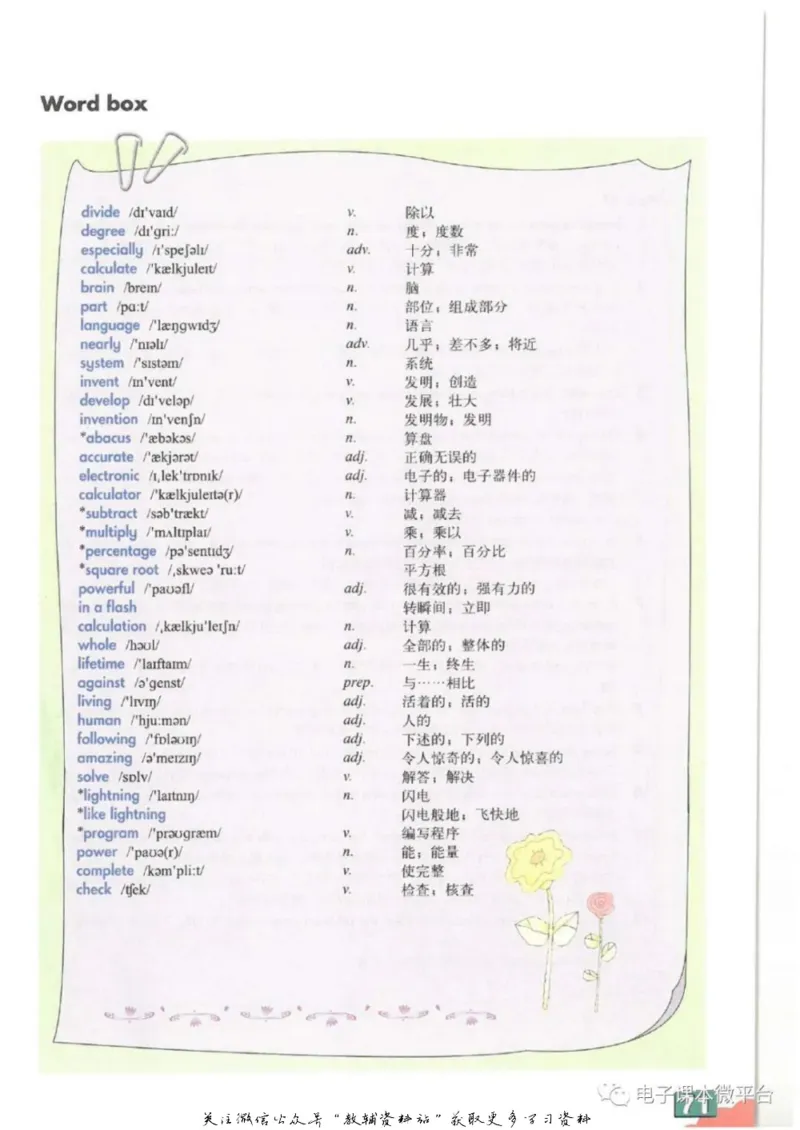 Word box
divide /dɪ'vaɪd/ v. 除以
degree /dɪ'gri:/ n. 度；度数
especially /ɪ'speʃəlɪ/ adv. 十分；非常
calculate /'kælkjuleɪt/ v. 计算
brain /breɪn/ n. 脑
part /pɑ:t/ n. 部位；组成部分
language /'læŋgwɪdʒ/ n. 语言
nearly /'nɪəlɪ/ adv. 几乎；差不多；将近
system /'sɪstəm/ n. 系统
invent /ɪn'vent/ v. 发明；创造
develop /dɪ'veləp/ v. 发展；壮大
invention /ɪn'venʃn/ n. 发明物；发明
*abacus /'æbəkəs/ n. 算盘
accurate /'ækjərət/ adj. 正确无误的
electronic /ɪˌlek'trɒnɪk/ adj. 电子的；电子器件的
calculator /'kælkjuleɪtə(r)/ n. 计算器
*subtract /səb'trækt/ v. 减；减去
*multiply /'mʌltɪplaɪ/ v. 乘；乘以
*percentage /pə'sentɪdʒ/ n. 百分率；百分比
*square root /ˌskweə 'ru:t/ 平方根
powerful /'paʊəfl/ adj. 很有效的；强有力的
in a flash 转瞬间；立即
calculation /ˌkælkju'leɪʃn/ n. 计算
whole /həʊl/ adj. 全部的；整体的
lifetime /'laɪftaɪm/ n. 一生；终生
against /ə'genst/ prep. 与……相比
living /'lɪvɪŋ/ adj. 活着的；活的
human /'hju:mən/ adj. 人的
following /'fɒləʊɪŋ/ adj. 下述的；下列的
amazing /ə'meɪzɪŋ/ adj. 令人惊奇的；令人惊喜的
solve /sɒlv/ v. 解答；解决
*lightning /'laɪtnɪŋ/ n. 闪电
*like lightning 闪电般地；飞快地
*program /'prəʊgræm/ v. 编写程序
power /'paʊə(r)/ n. 能；能量
complete /kəm'pli:t/ v. 使完整
check /tʃek/ v. 检查；核查
电子课本微平台
71
关注微信公众号“教辅资料站”获取更多学习资料